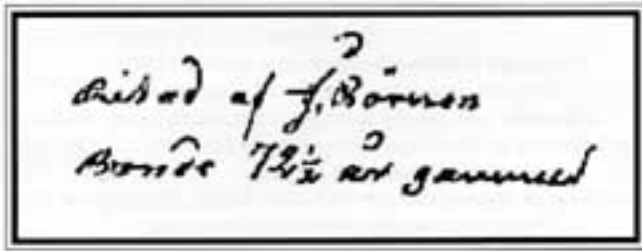 Ritad af J. Körner
Bonde 72½ år gammal